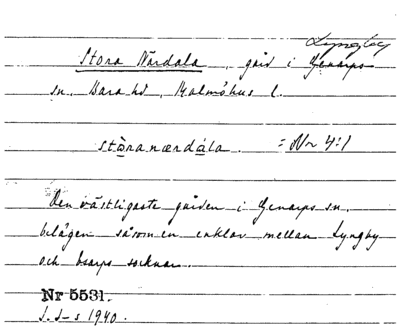 Lyngby
Stora Närdala, gård i Genarps
sn. Bara hd, Malmöhus l.
stòranærdála. = Nr 4:1
Den västligaste gården i Genarps sn.
belägen såsom en enklav mellan Lyngby
och Esarps socknar.
Nr 5531.
J. S-s 1940.